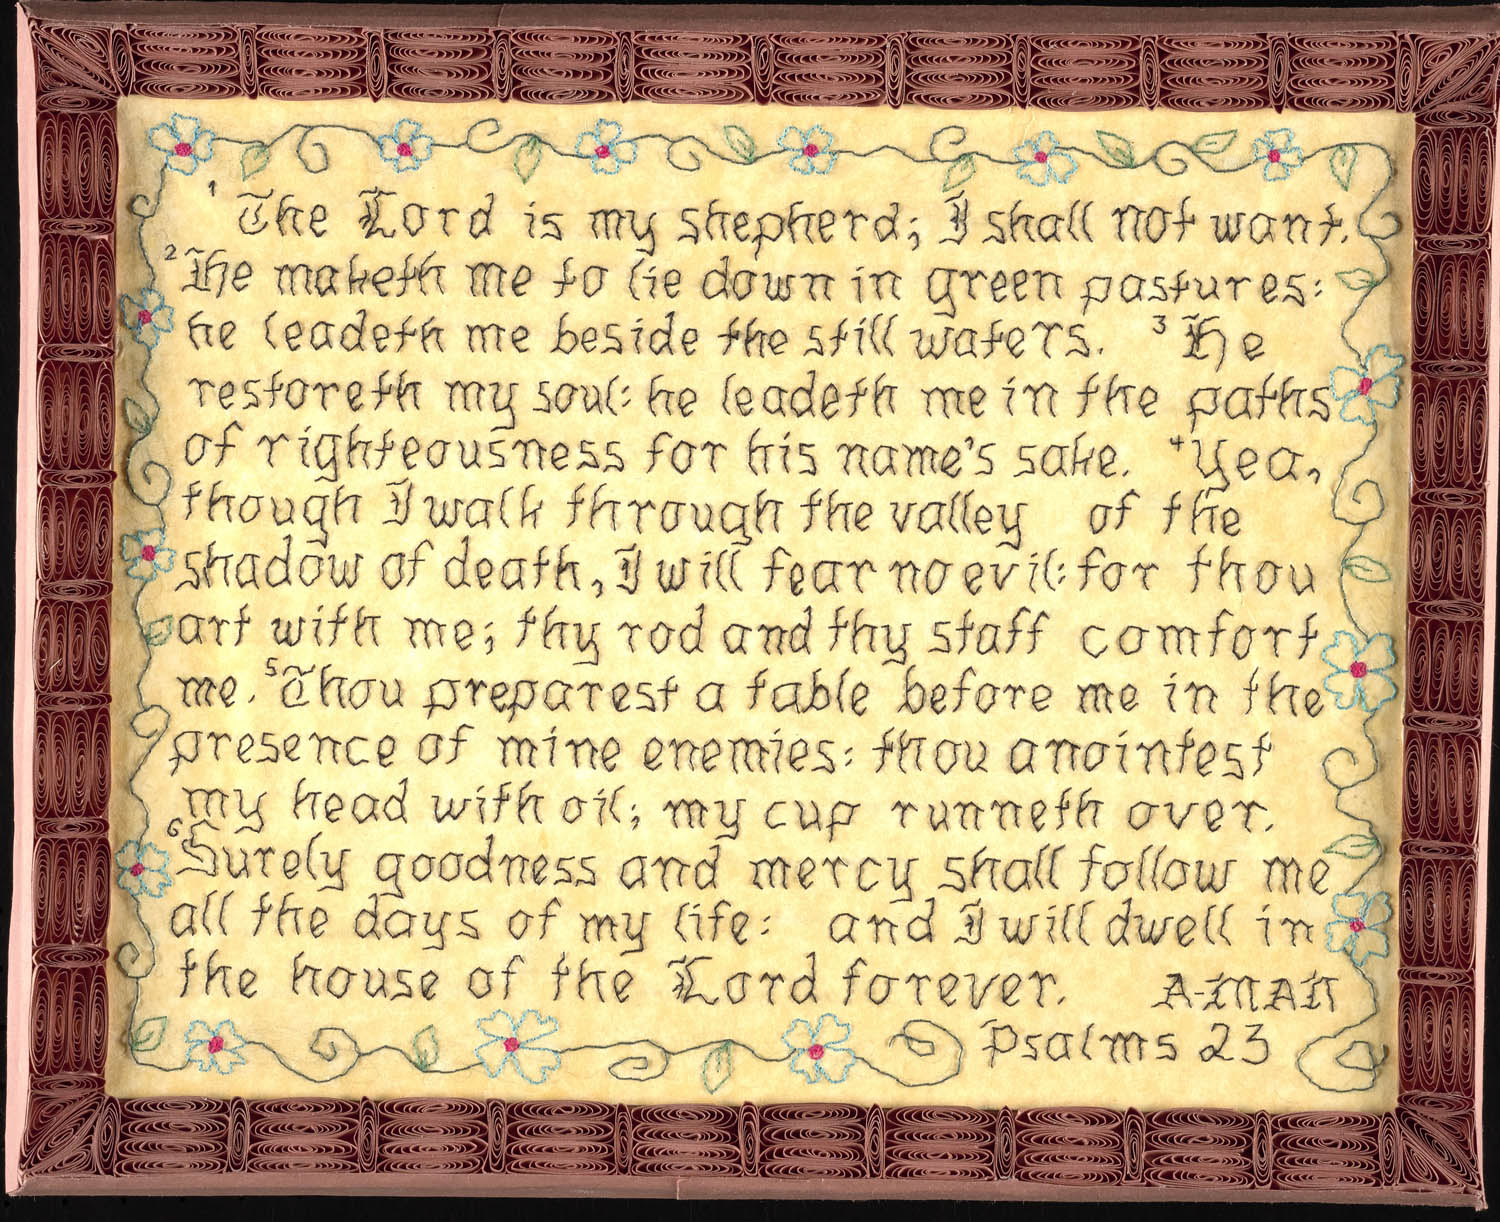 ¹ The Lord is my shepherd; I shall not want.
² He maketh me to lie down in green pastures:
he leadeth me beside the still waters. ³ He
restoreth my soul: he leadeth me in the paths
of righteousness for his name's sake. ⁴ Yea,
though I walk through the valley of the
shadow of death, I will fear no evil: for thou
art with me; thy rod and thy staff comfort
me. ⁵ Thou preparest a table before me in the
presence of mine enemies: thou anointest
my head with oil; my cup runneth over.
⁶ Surely goodness and mercy shall follow me
all the days of my life: and I will dwell in
the house of the Lord forever. A-MAN
Psalms 23